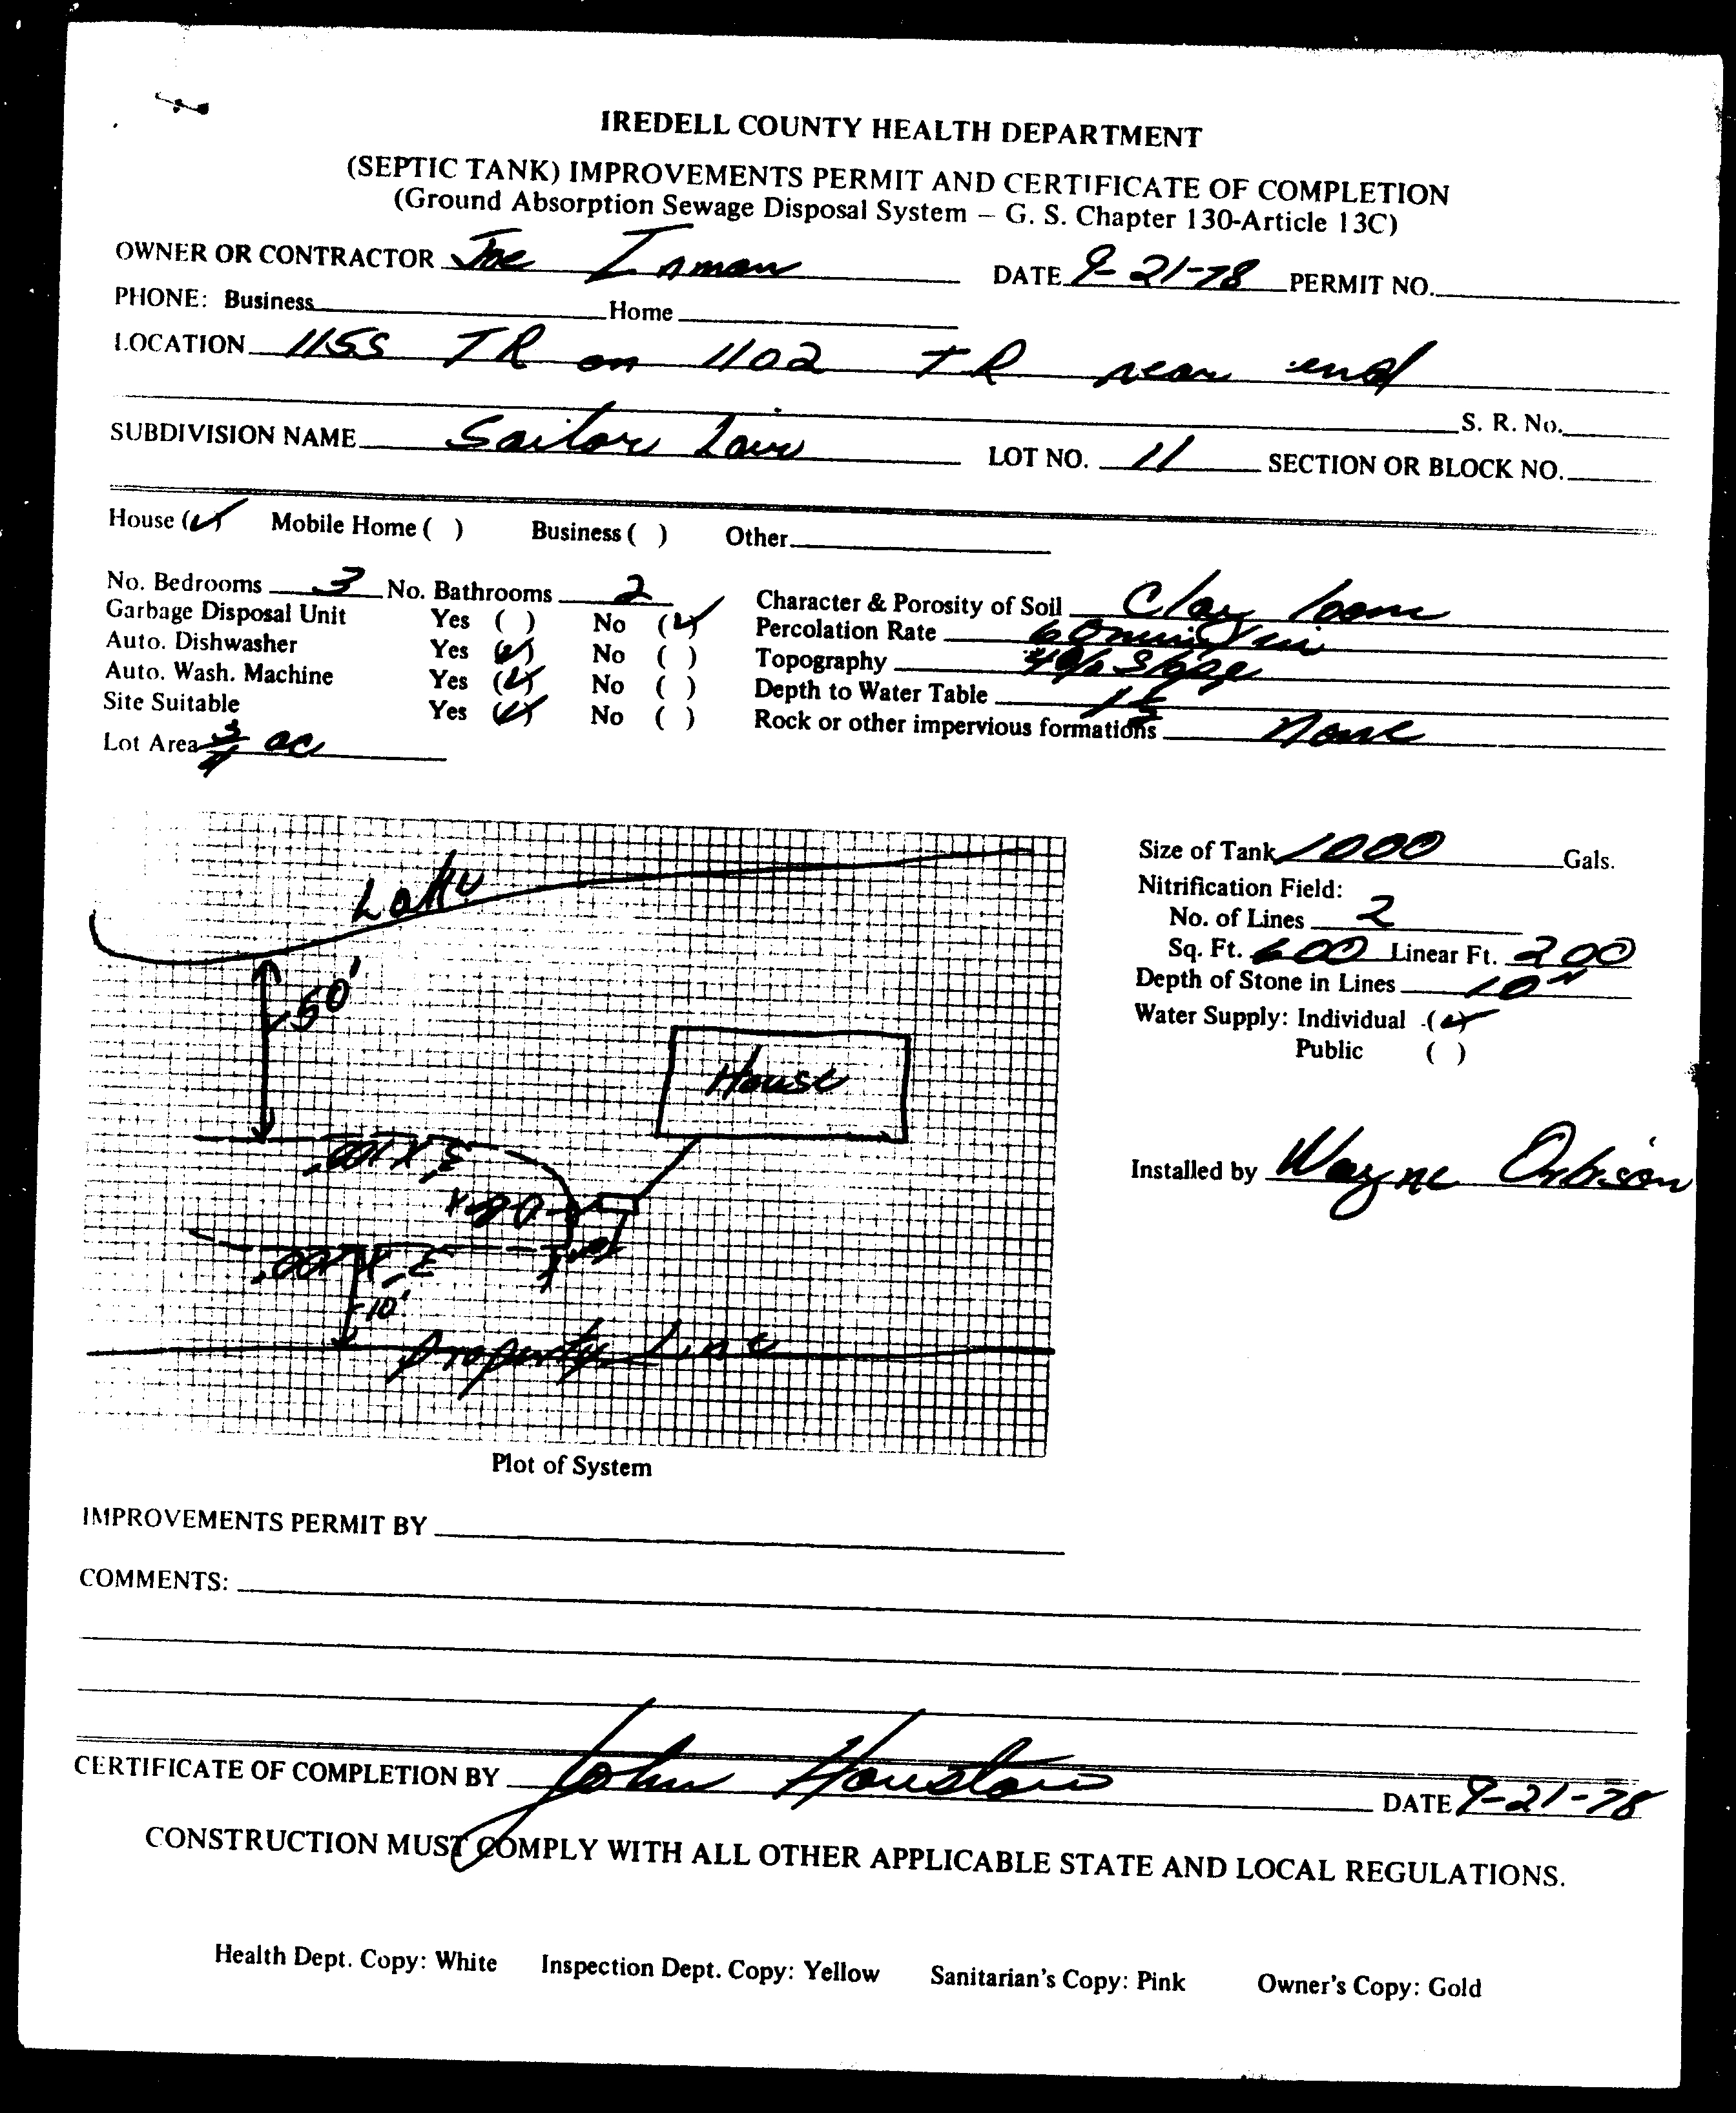 IREDELL COUNTY HEALTH DEPARTMENT
(SEPTIC TANK) IMPROVEMENTS PERMIT AND CERTIFICATE OF COMPLETION
(Ground Absorption Sewage Disposal System – G. S. Chapter 130-Article 13C)
OWNER OR CONTRACTOR Joe DATE 9-21-78 PERMIT NO.
PHONE: Business Home
LOCATION 1155 TR on 1102 TR near end
S. R. No.
SUBDIVISION NAME Sailor Lair LOT NO. 11 SECTION OR BLOCK NO.
House (✓) Mobile Home ( ) Business ( ) Other
No. Bedrooms 3 No. Bathrooms 2 Character & Porosity of Soil Clay loam
Garbage Disposal Unit Yes ( ) No (✓) Percolation Rate 60 min/in
Auto. Dishwasher Yes (✓) No ( ) Topography 4% Slope
Auto. Wash. Machine Yes (✓) No ( ) Depth to Water Table
Site Suitable Yes (✓) No ( ) Rock or other impervious formations None
Lot Area 3/4 ac
Size of Tank 1000 Gals.
Nitrification Field:
No. of Lines 2
Sq. Ft. 600 Linear Ft. 200
Depth of Stone in Lines 10"
Water Supply: Individual (✓)
Public ( )
Installed by Wayne Orbison
Lake
50'
House
3' X 100'
3' X 100'
10'
Property Line
Plot of System
IMPROVEMENTS PERMIT BY
COMMENTS:
CERTIFICATE OF COMPLETION BY John Houston DATE 9-21-78
CONSTRUCTION MUST COMPLY WITH ALL OTHER APPLICABLE STATE AND LOCAL REGULATIONS.
Health Dept. Copy: White Inspection Dept. Copy: Yellow Sanitarian's Copy: Pink Owner's Copy: Gold